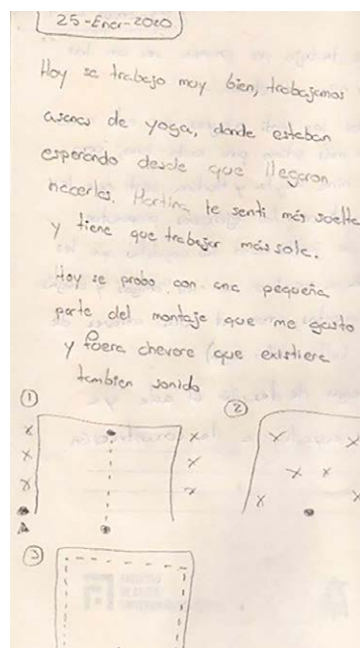 25-Ener-2020
Hoy se trabajo muy bien, trabajamos
asanas de yoga, donde estaban
esperando desde que llegaron
hacerlas. Martina, te senti más suelta
y tiene que trabajar más sola.
Hoy se probo con una pequeña
parte del montaje que me gusto
y fuera chevere (que existiera
tambien sonido
①
②
③